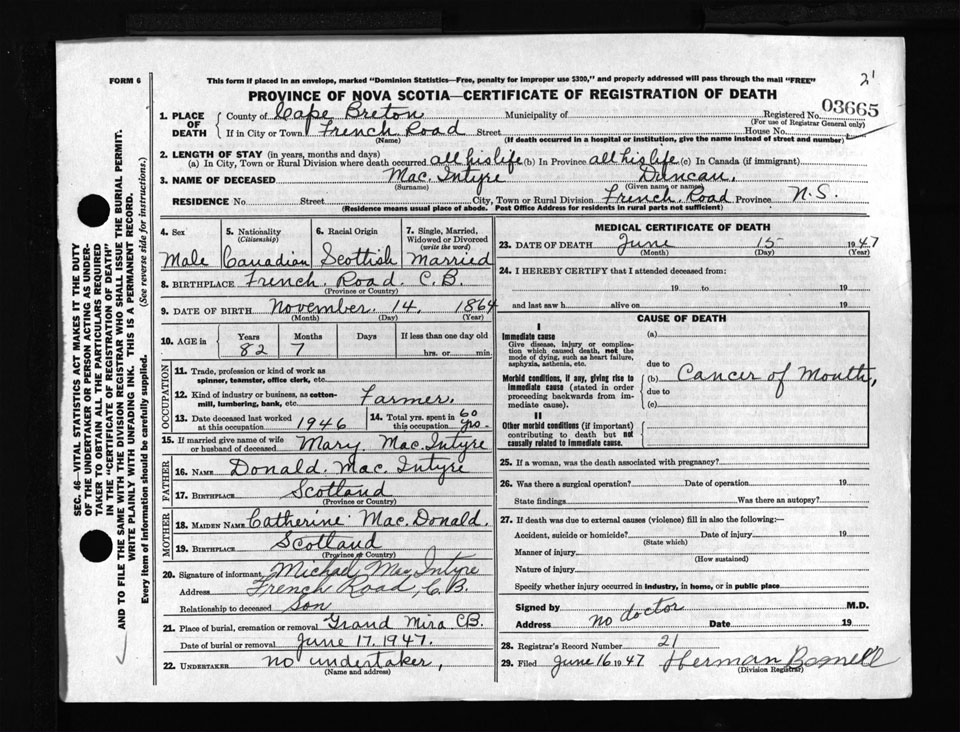 FORM 6
This form if placed in an envelope, marked "Dominion Statistics—Free, penalty for improper use $300," and properly addressed will pass through the mail "FREE"
2'
PROVINCE OF NOVA SCOTIA—CERTIFICATE OF REGISTRATION OF DEATH
1. PLACE OF DEATH County of Cape Breton Municipality of Registered No. 03665
(For use of Registrar General only)
If in City or Town French Road Street House No.
(Name) (If death occurred in a hospital or institution, give the name instead of street and number)
2. LENGTH OF STAY (in years, months and days)
(a) In City, Town or Rural Division where death occurred all his life (b) In Province all his life (c) In Canada (if immigrant)
3. NAME OF DECEASED Mac Intyre Duncan.
(Surname) (Given name or names)
RESIDENCE No. Street City, Town or Rural Division French Road Province N.S.
(Residence means usual place of abode. Post Office Address for residents in rural parts not sufficient)
4. Sex
Male
5. Nationality
(Citizenship)
Canadian
6. Racial Origin
Scottish
7. Single, Married, Widowed or Divorced
(write the word)
Married
8. BIRTHPLACE French Road C.B.
(Province or Country)
9. DATE OF BIRTH November 14, 1864
(Month) (Day) (Year)
10. AGE in Years Months Days If less than one day
82 7 hrs. or min.
OCCUPATION
11. Trade, profession or kind of work as
spinner, teamster, office clerk, etc.
12. Kind of industry or business, as cotton-
mill, lumbering, bank, etc. Farmer.
13. Date deceased last worked
at this occupation 1946
14. Total yrs. spent in
this occupation 60 yrs.
15. If married give name of wife
or husband of deceased Mary MacIntyre
FATHER
16. NAME Donald Mac Intyre
17. BIRTHPLACE Scotland
(Province or Country)
MOTHER
18. MAIDEN NAME Catherine MacDonald.
19. BIRTHPLACE Scotland
(Province or Country)
20. Signature of informant Michael Mac Intyre
Address French Road, C.B.
Relationship to deceased Son
21. Place of burial, cremation or removal Grand Mira CB.
Date of burial or removal June 17. 1947.
22. UNDERTAKER no undertaker,
(Name and address)
MEDICAL CERTIFICATE OF DEATH
23. DATE OF DEATH June 15 1947
(Month) (Day) (Year)
24. I HEREBY CERTIFY that I attended deceased from:
19 to 19
and last saw h alive on 19
CAUSE OF DEATH
I
Immediate cause (a)
Give disease, injury or complica-
tion which caused death, not the
mode of dying, such as heart failure,
asphyxia, asthenia, etc.
due to
Morbid conditions, if any, giving rise to
immediate cause (stated in order
proceeding backwards from im-
mediate cause).
(b) Cancer of Mouth,
due to
(c)
II
Other morbid conditions (if important)
contributing to death but not
causally related to immediate cause.
25. If a woman, was the death associated with pregnancy?
26. Was there a surgical operation? Date of operation 19
State findings Was there an autopsy?
27. If death was due to external causes (violence) fill in also the following:—
Accident, suicide or homicide? Date of injury 19
(State which)
Manner of injury
(How sustained)
Nature of injury
Specify whether injury occurred in industry, in home, or in public place
Signed by no doctor M.D.
Address Date 19
28. Registrar's Record Number 21
29. Filed June 16 1947 Herman
(Division Registrar)
SEC. 46—VITAL STATISTICS ACT MAKES IT THE DUTY
OF THE UNDERTAKER OR PERSON ACTING AS UNDER-
TAKER TO OBTAIN ALL THE PARTICULARS REQUIRED
IN THE "CERTIFICATE OF REGISTRATION OF DEATH"
AND TO FILE THE SAME WITH THE DIVISION REGISTRAR WHO SHALL ISSUE THE BURIAL PERMIT.
WRITE PLAINLY WITH UNFADING INK. THIS IS A PERMANENT RECORD.
Every item of information should be carefully supplied. (See reverse side for instructions.)